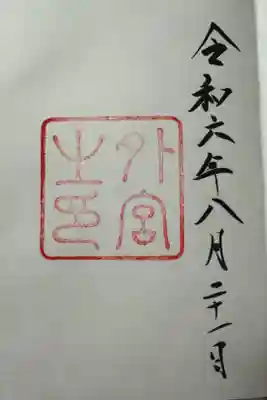 令和六年八月二十一日
外宮之印